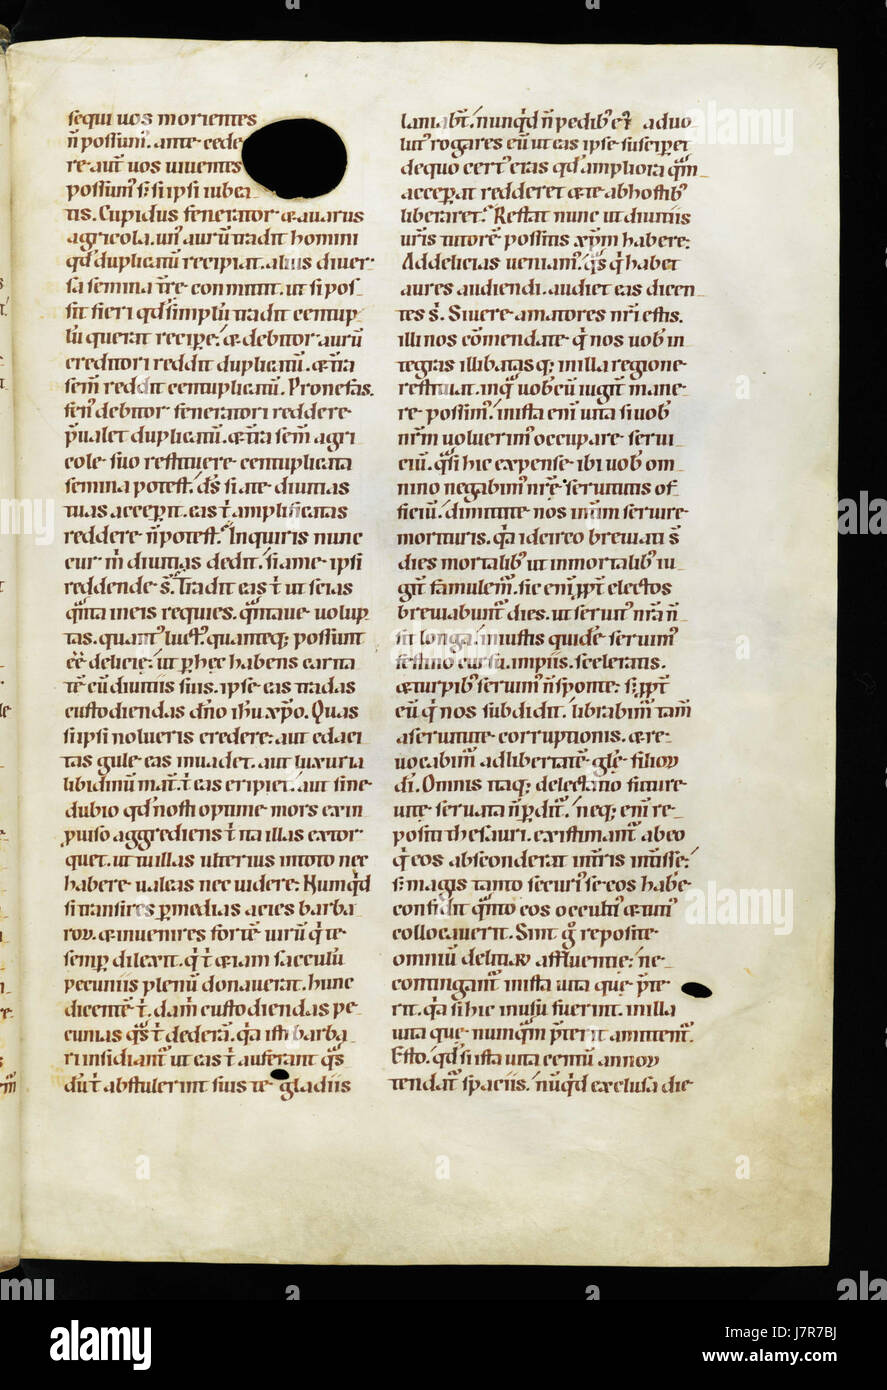 sequi uos morientes
n̄ possum᷒. ante cede
re aut̄ uos uiuentes
possum᷒ si ipsi iube
tis. Cupidus fenerator & auarus
agricola. un᷒ aurū tradit homini
qđ duplicatū recipiat. alius diuer
sa semina tr̄e committit. ut si pos
sit fieri qđ simplū tradit centup
lū querat recipe. & debitor aurū
creditori reddit duplicatū. & tr̄a
sem̄ reddit centuplicatū. Pro nefas.
debitor feneratori reddere
p̄ualet duplicatū. & tr̄a sem̄ agri
cole suo restituere centuplicata
semina potest. ds̄ si a te diuitias
tuas acceperit. eas t̄ amplificatas
reddere n̄ potest. Inquiris nunc
cur m̄ diuitias dedit. si a me ipsi
reddende s̄. Tradit eas t̄ ut scias
qn̄ta in eis requies. qn̄taue uolup
tas. quant᷒ luct᷒. quanteq; possunt
eē delicie. ut p̱ hec habens carita
tē cū diuitiis suis. ipse eas tradas
custodiendas dn̄o ih̄u xp̄o. Quas
si ipsi nolueris credere. aut edaci
tas gule eas inuadet. aut luxuria
libidinū mat̄. t̄ eas eripiet. aut sine
dubio qđ nosti optime mors ex in
puiso aggrediens t̄ ita illas extor
quet. ut in illas ulterius in toto nec
habere ualeas nec uidere. Numqđ
si transires p̱ medias acies barba
roꝝ. & inuenires fortē uirū q̄ te
semp̱ dilexit. q̄ t̄ & iam sacculū
pecuniis plenū donauerat. hunc
dicentē t̄. da m̄ custodiendas pe
cunias qs̄ t̄ dederā. qa isti barba
ri insidiant᷒ ut eas t̄ auferant qs̄
dū t̄ abstulerint suis te gladiis
laniabt̄. nunqđ n̄ pedib᷒ ei᷒ aduo
lut᷒ rogares eū ut eas ipse susciperet
de quo cert᷒ eras qđ ampliora qm̄
acceperat redderet & te ab hostib᷒
liberaret. Restat nunc ut diuitiis
ur̄is tutorē possitis xp̄m habere.
Ad delicias ueniam᷒. qs̄ q̄ habet
aures audiendi. audiet eas dicen
tes s̄. Si uere amatores nr̄i estis.
illi nos cōmendate q̄ nos uob᷒ in
tegras illibatasq; in illa regione
restituat. in q̄ uob᷒cū iugit᷒ mane
re possim᷒. in ista eni᷒ uita si uob᷒
nr̄m uoluerim᷒ occupare serui
ciū. qs̄i hic expense ibi uob᷒ om
nino negabim᷒ nr̄e seruitutis of
ficiū. dimittite nos inuicem seruire
morituris. qa idcirco breuiati s̄
dies mortalib᷒ ut inmortalib᷒ iu
git᷒ famulem᷒. sic eni᷒ p̱pt᷒ electos
breuiabunt᷒ dies. ut seruit᷒ nr̄a n̄
sit longa. iniustis quidē seruim᷒
festino cursu. impiis. sceleratis.
& turpib᷒ seruim᷒ n̄ sponte. s; p̱pt᷒
eū q̄ nos subdidit. liberabim᷒ tam̄
a seruitute corruptionis. & re
uocabim᷒ ad libertatē glē filioꝝ
dī. Omnis itaq; delectatio si iure
uite seruata n̄ p̱dit᷒. neq; eni᷒ re
positi thesauri. existimant᷒ ab eo
q̄ eos absconderat int᷒ris intisse.
s; magis tanto securi᷒ se eos habe
confidit qn̄to eos occulti᷒ & tuti᷒
collocauerit. Sint ḡ reposite
omniū delitiaꝝ affluentie. ne
contingant᷒ in ista uita que p̄te
rit. qa si hic inusu fuerint. in illa
uita que numqm̄ p̄terit amittent᷒.
Esto. qđ si ista uita centū annoꝝ
tendat᷒ spaciis. nūqđ exclusa die
alamy
J7R7BJ
www.alamy.com